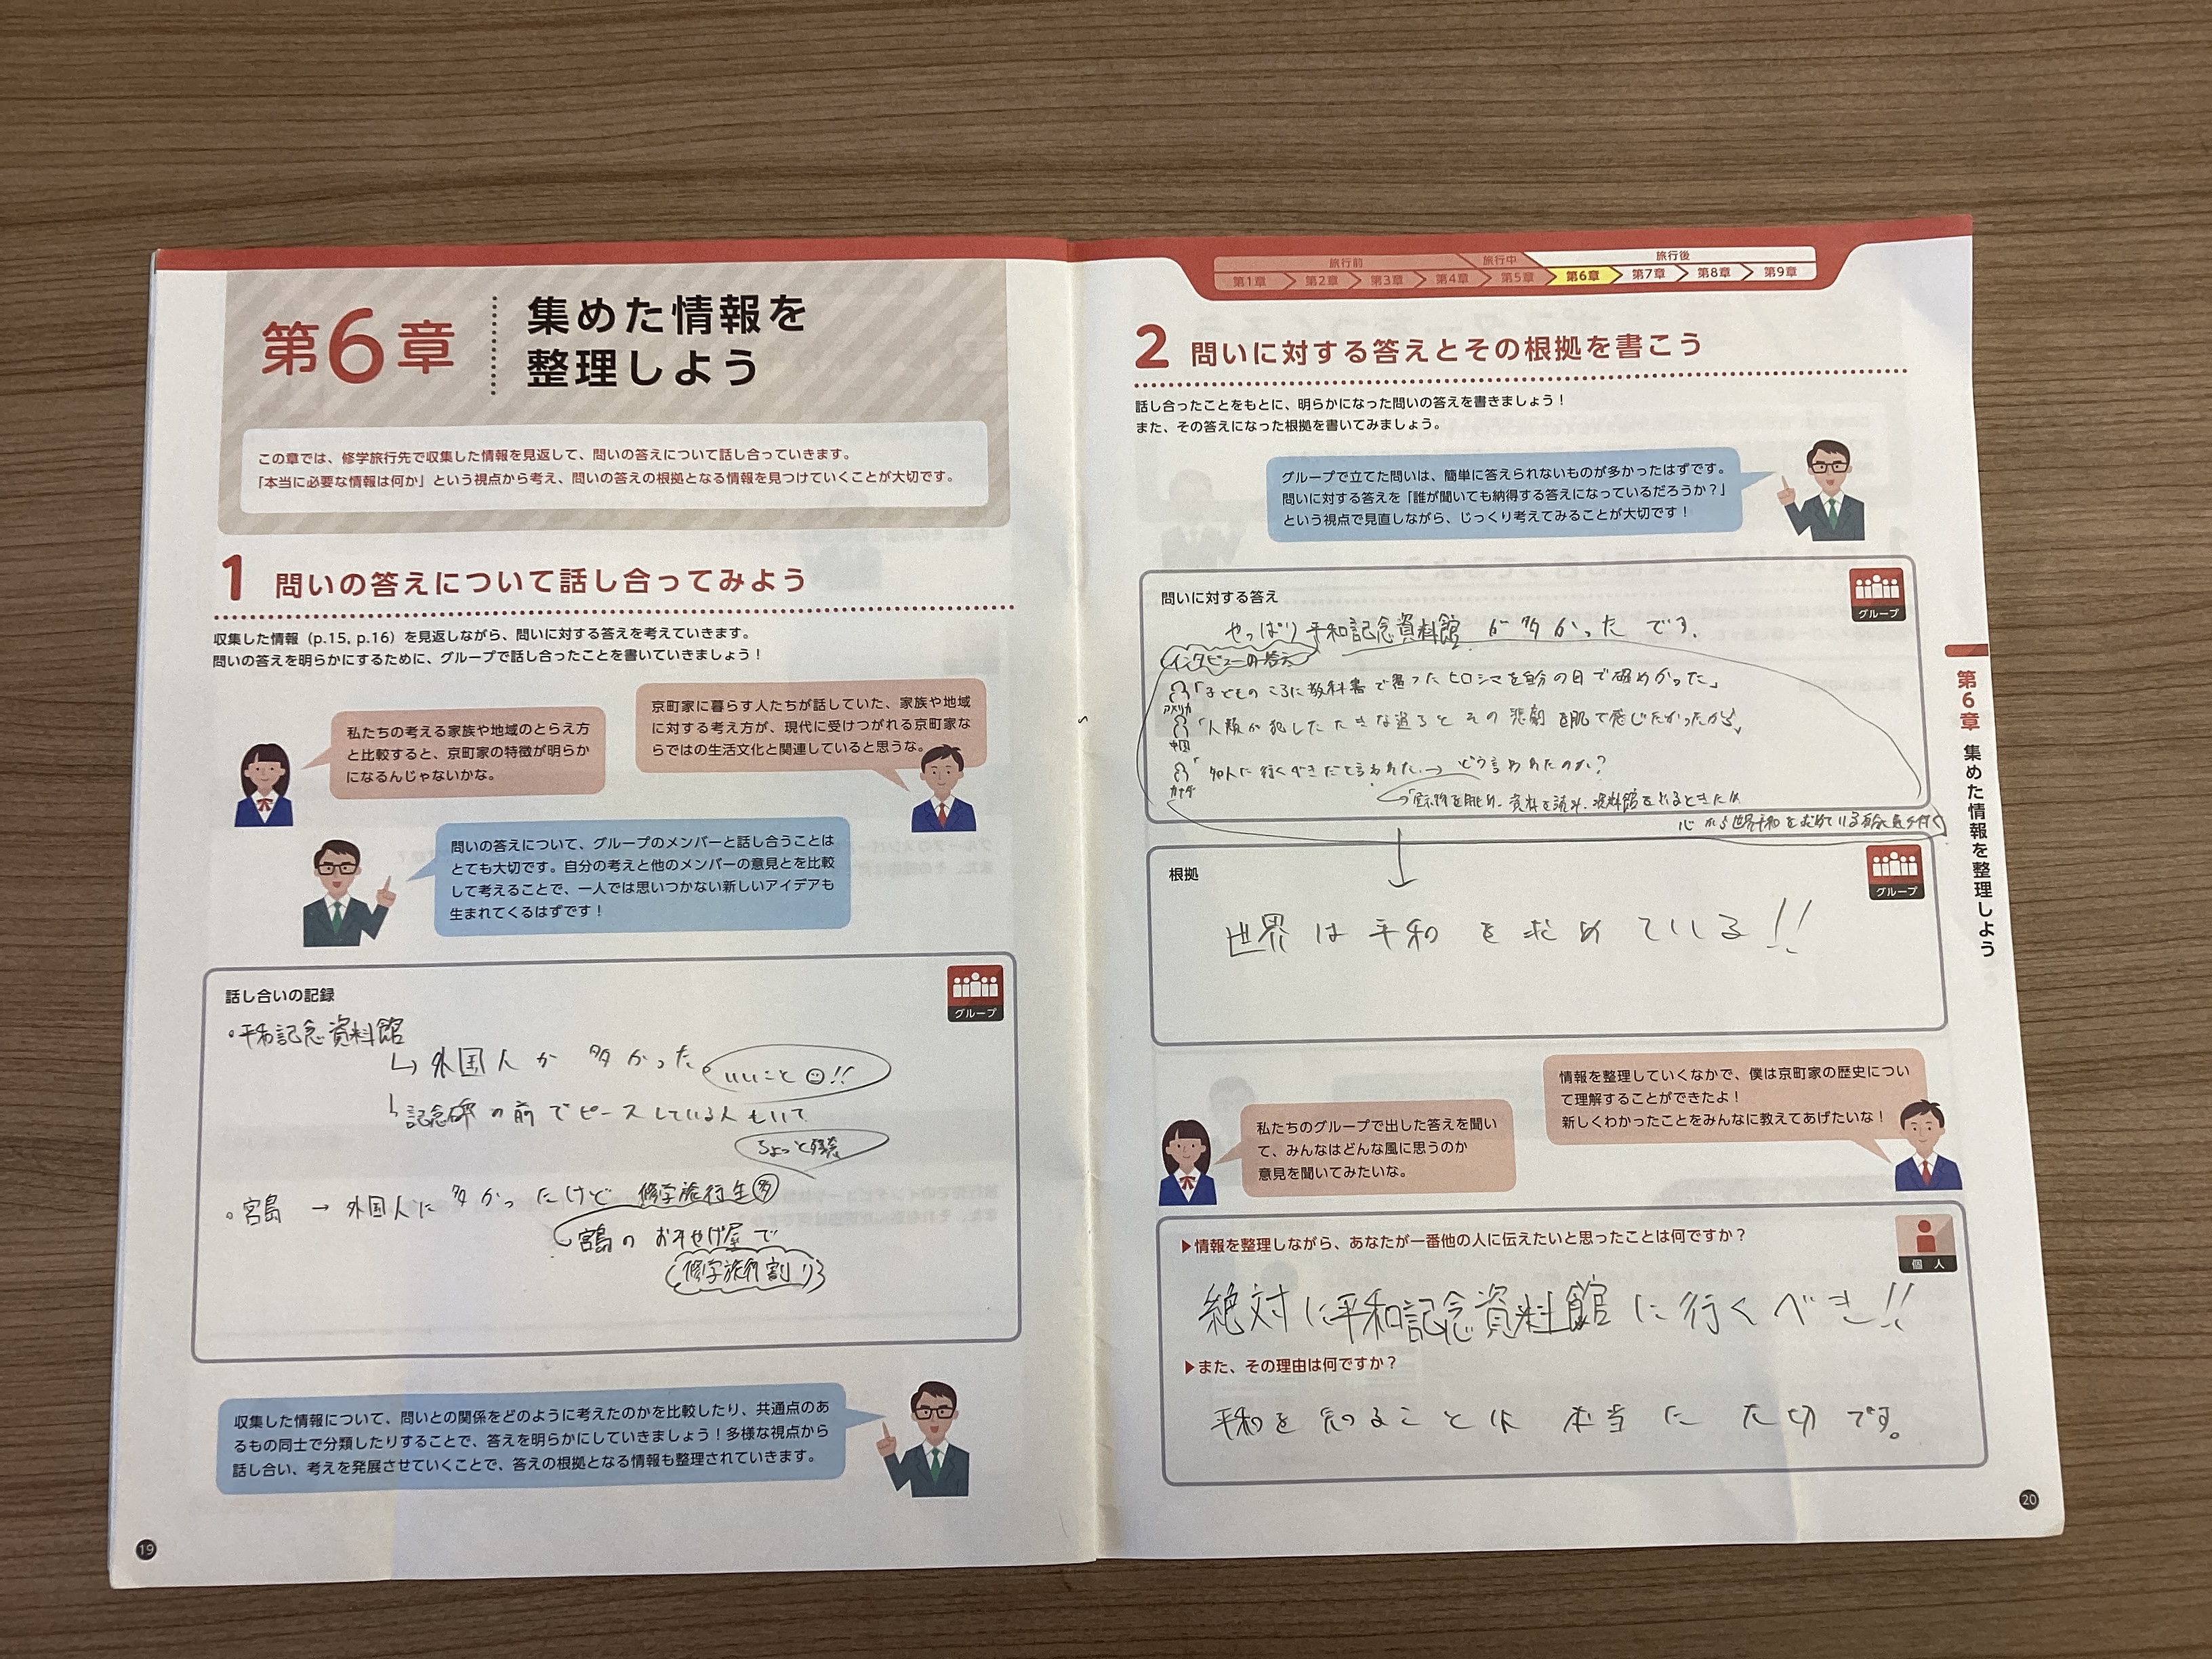 第6章
集めた情報を
整理しよう
この章では、修学旅行先で収集した情報を見返して、問いの答えについて話し合っていきます。
「本当に必要な情報は何か」という視点から考え、問いの答えの根拠となる情報を見つけていくことが大切です。
1 問いの答えについて話し合ってみよう
収集した情報（p.15, p.16）を見返しながら、問いに対する答えを考えていきます。
問いの答えを明らかにするために、グループで話し合ったことを書いていきましょう！
私たちの考える家族や地域のとらえ方
と比較すると、京町家の特徴が明らか
になるんじゃないかな。
京町家に暮らす人たちが話していた、家族や地域
に対する考え方が、現代に受けつがれる京町家な
らではの生活文化と関連していると思うな。
問いの答えについて、グループのメンバーと話し合うことは
とても大切です。自分の考えと他のメンバーの意見とを比較
して考えることで、一人では思いつかない新しいアイデアも
生まれてくるはずです！
話し合いの記録
グループ
・平和記念資料館
↳外国人が多かった。いいこと☺!!
↳記念碑の前でピースしている人もいて
ちょっと残念
・宮島 → 外国人に多かったけど 修学旅行生多
宮島のおみやげ屋で
修学旅行割り
収集した情報について、問いとの関係をどのように考えたのかを比較したり、共通点のあ
るもの同士で分類したりすることで、答えを明らかにしていきましょう！多様な視点から
話し合い、考えを発展させていくことで、答えの根拠となる情報も整理されていきます。
19
旅行前 旅行中 旅行後
第1章 第2章 第3章 第4章 第5章 第6章 第7章 第8章 第9章
2 問いに対する答えとその根拠を書こう
話し合ったことをもとに、明らかになった問いの答えを書きましょう！
また、その答えになった根拠を書いてみましょう。
グループで立てた問いは、簡単に答えられないものが多かったはずです。
問いに対する答えを「誰が聞いても納得する答えになっているだろうか？」
という視点で見直しながら、じっくり考えてみることが大切です！
問いに対する答え
グループ
やっぱり平和記念資料館が多かったです。
インタビューの答え
「子どものころに教科書で習ったヒロシマを自分の目で確めかった」
アメリカ
「人類が犯した大きな過ちとその悲劇を肌で感じたかったから」
中国
「知人に行くべきだと言われた。→ どう言われたのか？
カナダ
「展示物を眺め、資料を読み、資料館を出るときには
心から世界平和を求めている自分に気が付く」
根拠
グループ
世界は平和を求めている!!
私たちのグループで出した答えを聞い
て、みんなはどんな風に思うのか
意見を聞いてみたいな。
情報を整理していくなかで、僕は京町家の歴史につい
て理解することができたよ！
新しくわかったことをみんなに教えてあげたいな！
▶情報を整理しながら、あなたが一番他の人に伝えたいと思ったことは何ですか？
個人
絶対に平和記念資料館に行くべき!!
▶また、その理由は何ですか？
平和を知ることは本当に大切です。
第6章 集めた情報を整理しよう
20